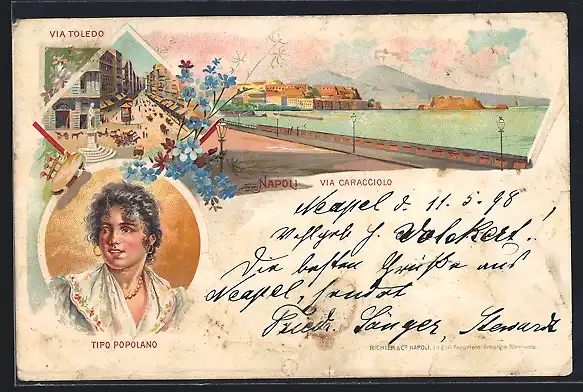 VIA TOLEDO
NAPOLI VIA CARACCIOLO
Neapel d. 11.5.98
Volkert!
Die besten Grüße aus
Neapel, sendet
Friedr. Sänger, Steward
TIPO POPOLANO
RICHTER & Co. NAPOLI.